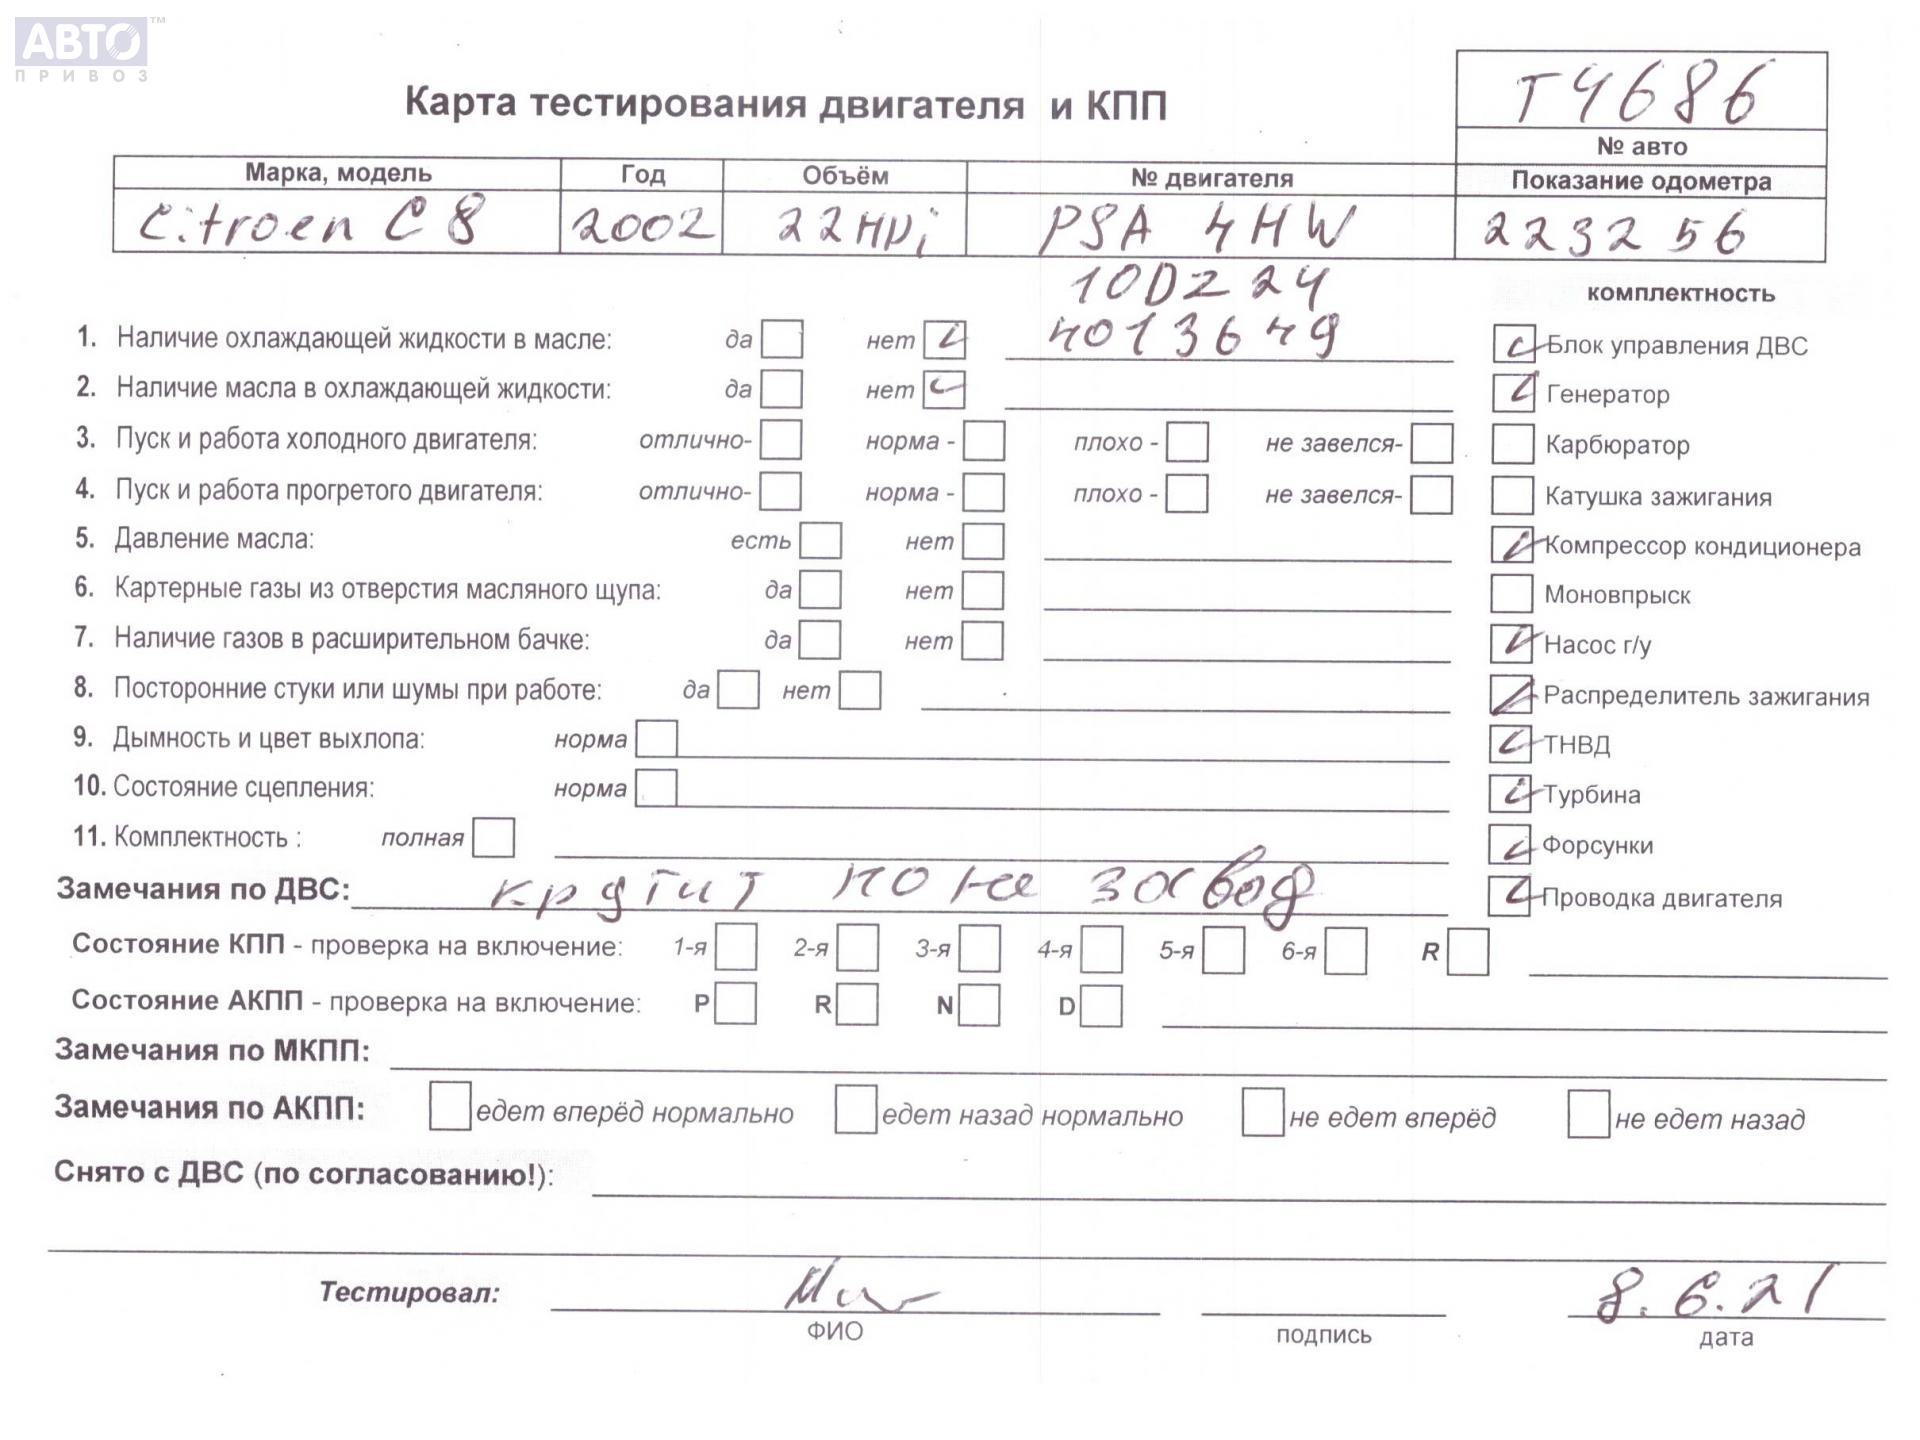 АВТО™
ПРИВОЗ
Карта тестирования двигателя и КПП
Т4686
№ авто
Марка, модель Год Объём № двигателя Показание одометра
Citroen C8 2002 22HDi PSA 4HW 223256
10DZ24 комплектность
4013649
1. Наличие охлаждающей жидкости в масле: да нет Блок управления ДВС
2. Наличие масла в охлаждающей жидкости: да нет Генератор
3. Пуск и работа холодного двигателя: отлично- норма - плохо - не завелся- Карбюратор
4. Пуск и работа прогретого двигателя: отлично- норма - плохо - не завелся- Катушка зажигания
5. Давление масла: есть нет Компрессор кондиционера
6. Картерные газы из отверстия масляного щупа: да нет Моновпрыск
7. Наличие газов в расширительном бачке: да нет Насос г/у
8. Посторонние стуки или шумы при работе: да нет Распределитель зажигания
9. Дымность и цвет выхлопа: норма ТНВД
10. Состояние сцепления: норма Турбина
11. Комплектность : полная Форсунки
Замечания по ДВС: крутит но не завод Проводка двигателя
Состояние КПП - проверка на включение: 1-я 2-я 3-я 4-я 5-я 6-я R
Состояние АКПП - проверка на включение: P R N D
Замечания по МКПП:
Замечания по АКПП: едет вперёд нормально едет назад нормально не едет вперёд не едет назад
Снято с ДВС (по согласованию!):
Тестировал: 8.6.21
ФИО подпись дата